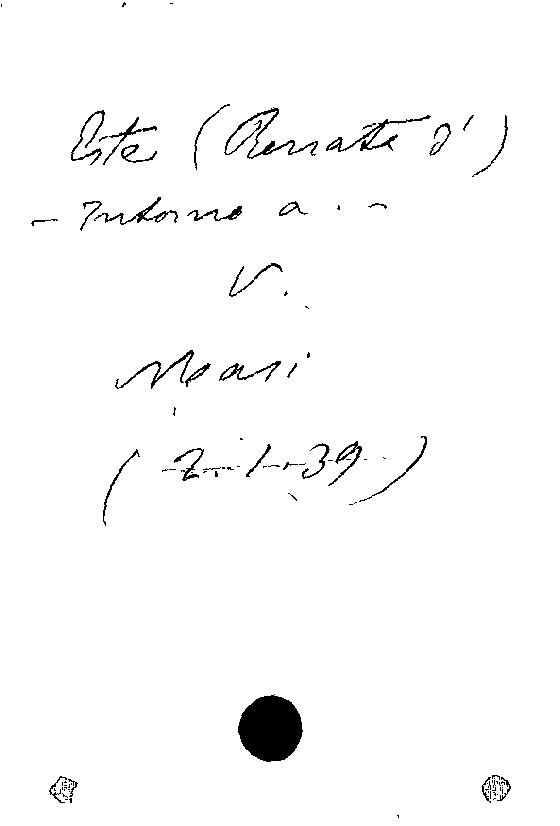 Este (Renata d')
- Intorno a . -
V.
Masi
(Z.-I-.39)